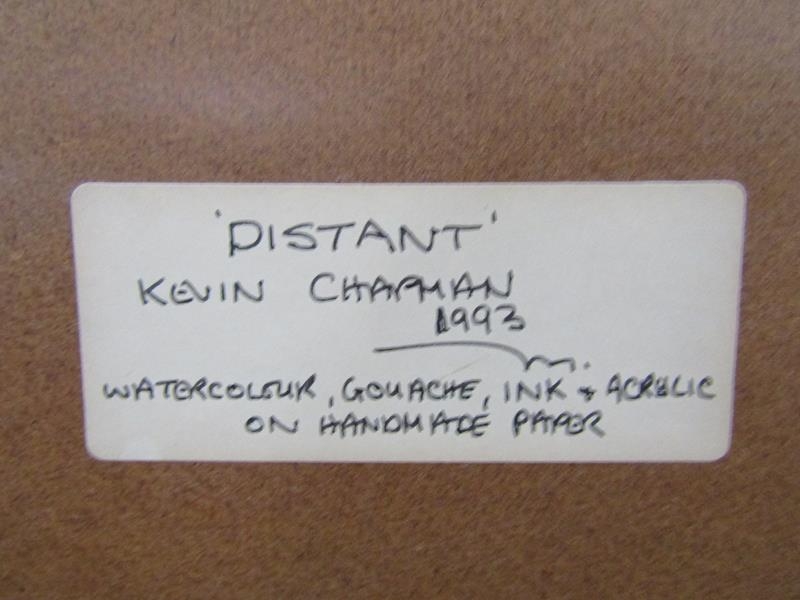 'DISTANT'
KEVIN CHAPMAN
1993
WATERCOLOUR, GOUACHE, INK & ACRYLIC
ON HANDMADE PAPER